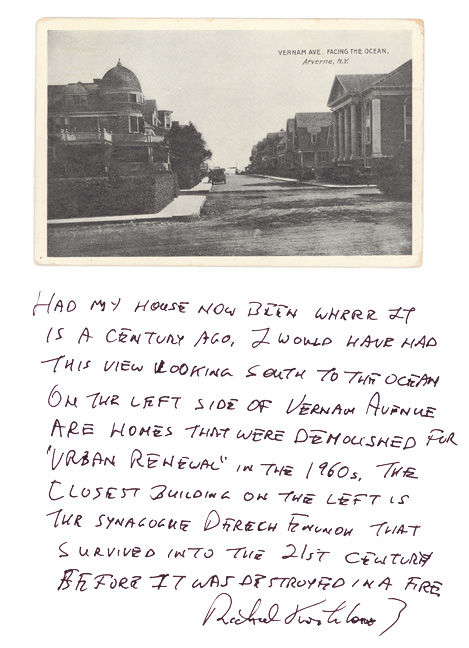 VERNAM AVE. FACING THE OCEAN,
Arverne, N.Y.
HAD MY HOUSE NOW BEEN WHERE IT
IS A CENTURY AGO, I WOULD HAVE HAD
THIS VIEW LOOKING SOUTH TO THE OCEAN
ON THE LEFT SIDE OF VERNAM AVENUE
ARE HOMES THAT WERE DEMOLISHED FOR
"URBAN RENEWAL" IN THE 1960s. THE
CLOSEST BUILDING ON THE LEFT IS
THE SYNAGOGUE DERECH EMUNOH THAT
SURVIVED INTO THE 21ST CENTURY
BEFORE IT WAS DESTROYED IN A FIRE
Richard